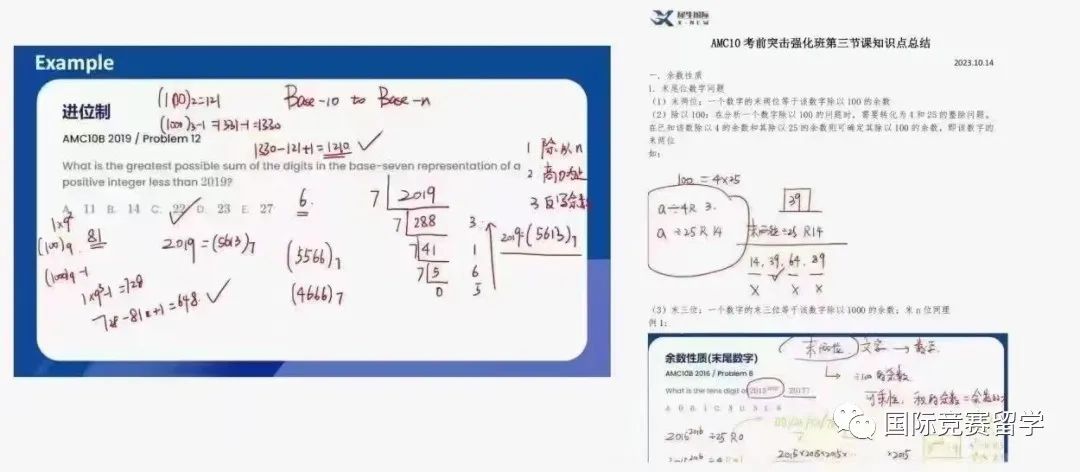 Example
进位制
AMC10B 2019 / Problem 12
What is the greatest possible sum of the digits in the base-seven representation of a
positive integer less than 2019?
A. 11 B. 14 C. 22 D. 23 E. 27
(100)₂=121
Base-10 to Base-n
(1000)₃-1=1331-1=1330
1330-121+1=1210
1 除以n
2
3 反写余数
6
7 2019
7 288 3
7 41 1
7 5 6
0 5
2019=(5613)₇
1×9²
(100)₉ 81
2019=(5613)₇
(5566)₇
(4666)₇
(1000)₉-1
1×9³-1=728
728-81+1=648
X-NEW
AMC10 考前突击强化班第三节课知识点总结
2023.10.14
一、余数性质
1. 末尾位数字问题
（1）末两位：一个数字的末两位等于该数字除以 100 的余数
（2）除以 100：在分析一个数字除以 100 的问题时，需要转化为 4 和 25 的整除问题。
在已知该数除以 4 的余数和其除以 25 的余数则可确定其除以 100 的余数，即该数字的
末两位
如：
100 = 4×25
a÷4R 3.
a÷25R14
39
末两位÷25 R14
14, 39, 64, 89
（3）末三位：一个数字的末三位等于该数字除以 1000 的余数；末 n 位同理
例 1：
余数性质(末尾数字)
AMC10B 2016 / Problem 8
What is the tens digit of 2015²⁰¹⁶ - 2017?
末两位 文字 → 数字
÷100的余数
可乘性，积的余数=余数的
2015²⁰¹⁶ ÷25 R0
2015×2015×2015×… ×2015
国际竞赛留学